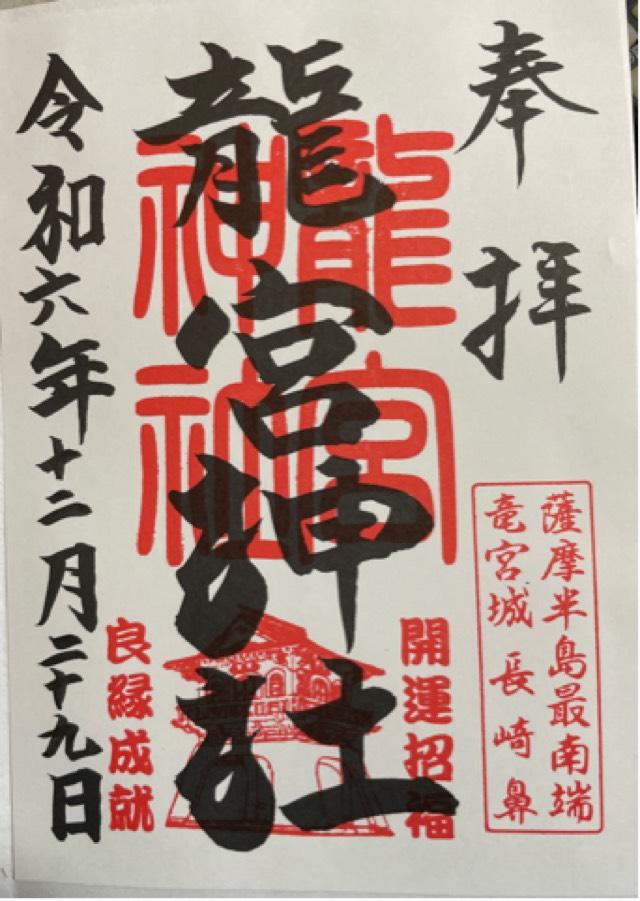 奉拝
薩摩半島最南端
竜宮城 長崎鼻
龍宮神社
龍宮
神社
開運招福
良縁成就
令和六年十二月二十九日